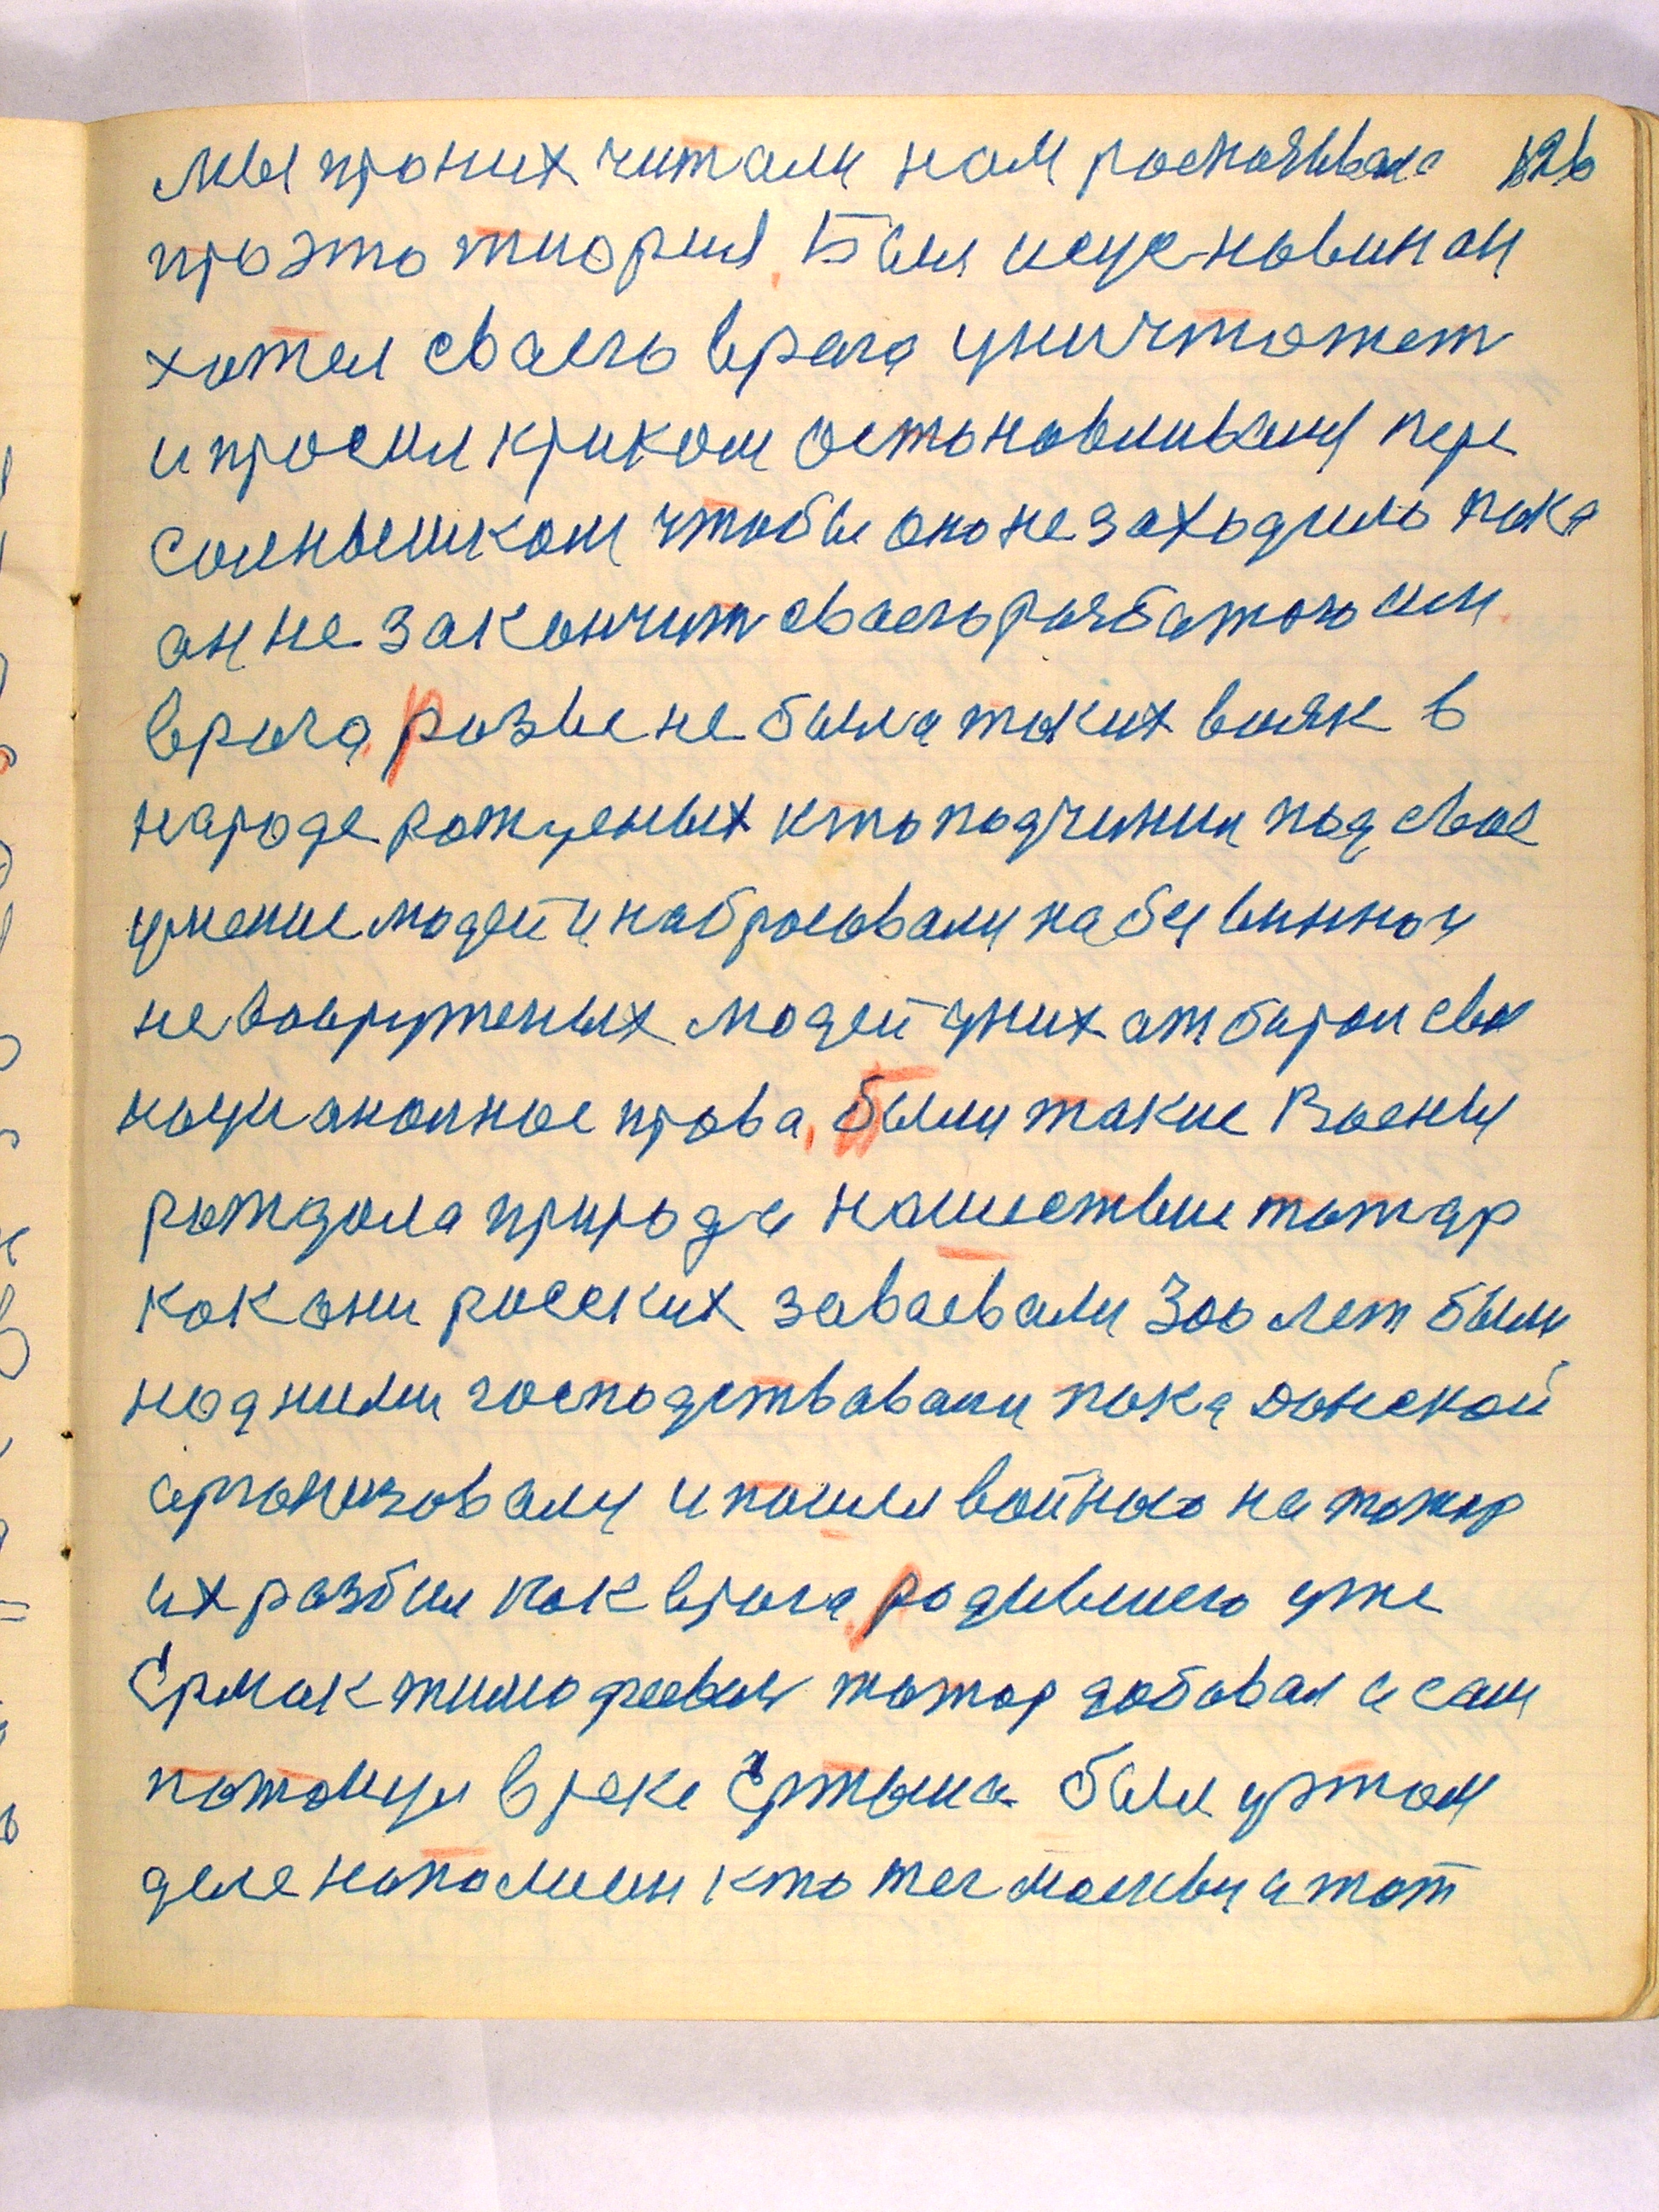 мыProних читали нам роспочивала 126
про это тиория. Был исус новин он
хотел сваего врага уничтожет
и просил криком остоновливаия пере
солнышком чтобы оно не заходило пока
он не закончит сваего рязбатого им
врага, розве не была таких вояк в
народе рожденых кто подчинил под свое
умение людей и набросовали на бевинных
невооруженых людей у них атбирои свои
национолное права, были такие Воены
рождола природа нашествие тотар
как они росских заваевали 300 лет были
над ними господствавали пока донской
арганизовали и пошел войною на тотар
их розбил как врага, родившего уже
Ермак тимофеевич тотар добовал а сам
потонул в реке Ертыша был у этом
деле наполион кто жег москву а тот